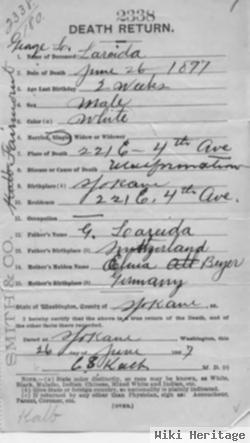 2338
2338.
DEATH RETURN.
George L. Lareida
1. Name of Deceased
2. Date of Death June 26 1897
3. Age Last Birthday 2 Weeks
4. Sex Male
5. Color (a) White
6. Married, Single, Widow or Widower
7. Place of Death 221 E-4th Ave
8. Disease or Cause of Death
9. Birthplace (b) Spokane
10. Residence 221 E. 4th Ave.
11. Occupation
12. Father's Name G. Lareida
13. Father's Birthplace (b) Switzerland
14. Mother's Maiden Name Beyer
15. Mother's Birthplace (b) Germany
State of Washington, County of Spokane, ss.
I hereby certify that the above is a true return of the Death, and of the other facts there recorded.
Dated at Spokane Washington, this
26 day of June 1897
M. D. (c)
NOTE.—(a) State color distinctly, so race may be known, as White, Black, Mulatto, Indian, Chinese, Mixed White and Indian, etc.
(b) Give State or foreign country, so nationality is plainly indicated.
(c) If returned by any other than Physician, sign as: Accoucheur, Parent, Coroner, etc.
(OVER.)
SMITH & CO.
Wiki Heritage